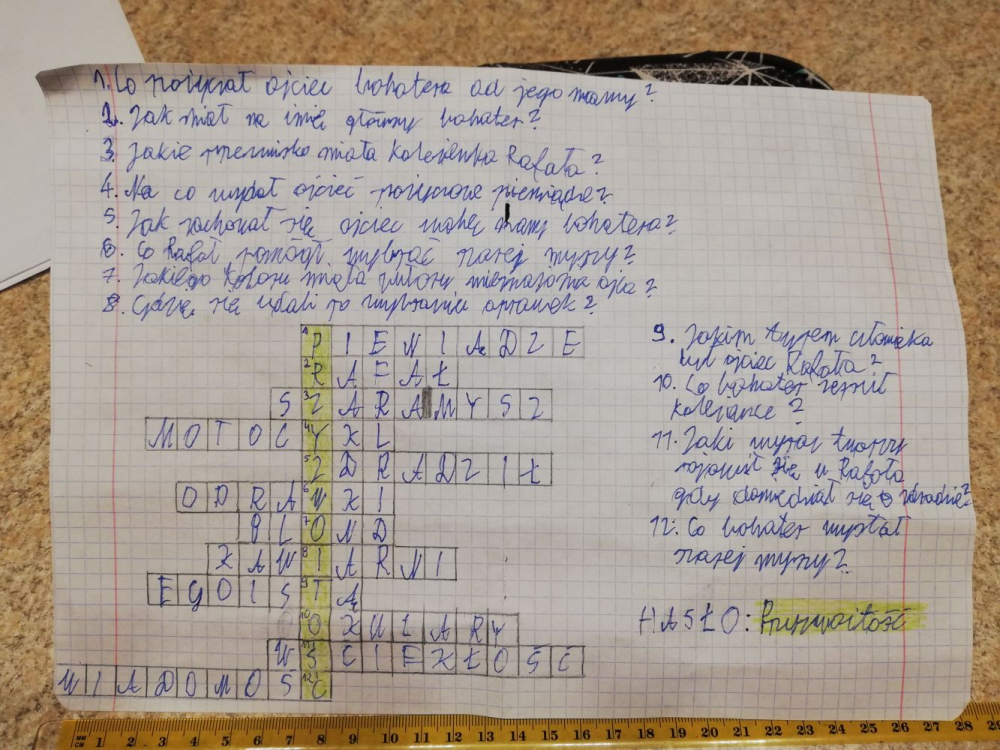 1. Co pożyczał ojciec bohatera od jego mamy?
2. Jak miał na imię główny bohater?
3. Jakie przezwisko miała koleżanka Rafała?
4. Na co wydał ojcieć pożyczone pieniądze?
5. Jak zachował się ojciec wobec mamy bohatera?
6. Co Rafał pomógł wybrać szarej myszy?
7. Jakiego koloru miała włosy nieznajoma ojca?
8. Gdzie się udali po wybraniu oprawek?
1 P I E N I Ą D Z E
2 R A F A Ł
3 S Z A R A M Y S Z
4 M O T O C Y K L
5 Z D R A D Z I Ł
6 O P R A W K I
7 B L O N D
8 K A W I A R N I
9 E G O I S T Ą
10 O K U L A R Y
11 W Ś C I E K Ł O Ś Ć
12 W I A D O M O Ś Ć
9. Jakim typem człowieka
był ojciec Rafała?
10. Co bohater zepsuł
koleżance?
11. Jaki wyraz twarzy
pojawił się u Rafała
gdy dowiedział się o zdradzie?
12. Co bohater wysłał
szarej myszy?
HASŁO: Przyzwoitość
MM
CM
1 2 3 4 5 6 7 8 9 10 11 12 13 14 15 16 17 18 19 20 21 22 23 24 25 26 27 28 29